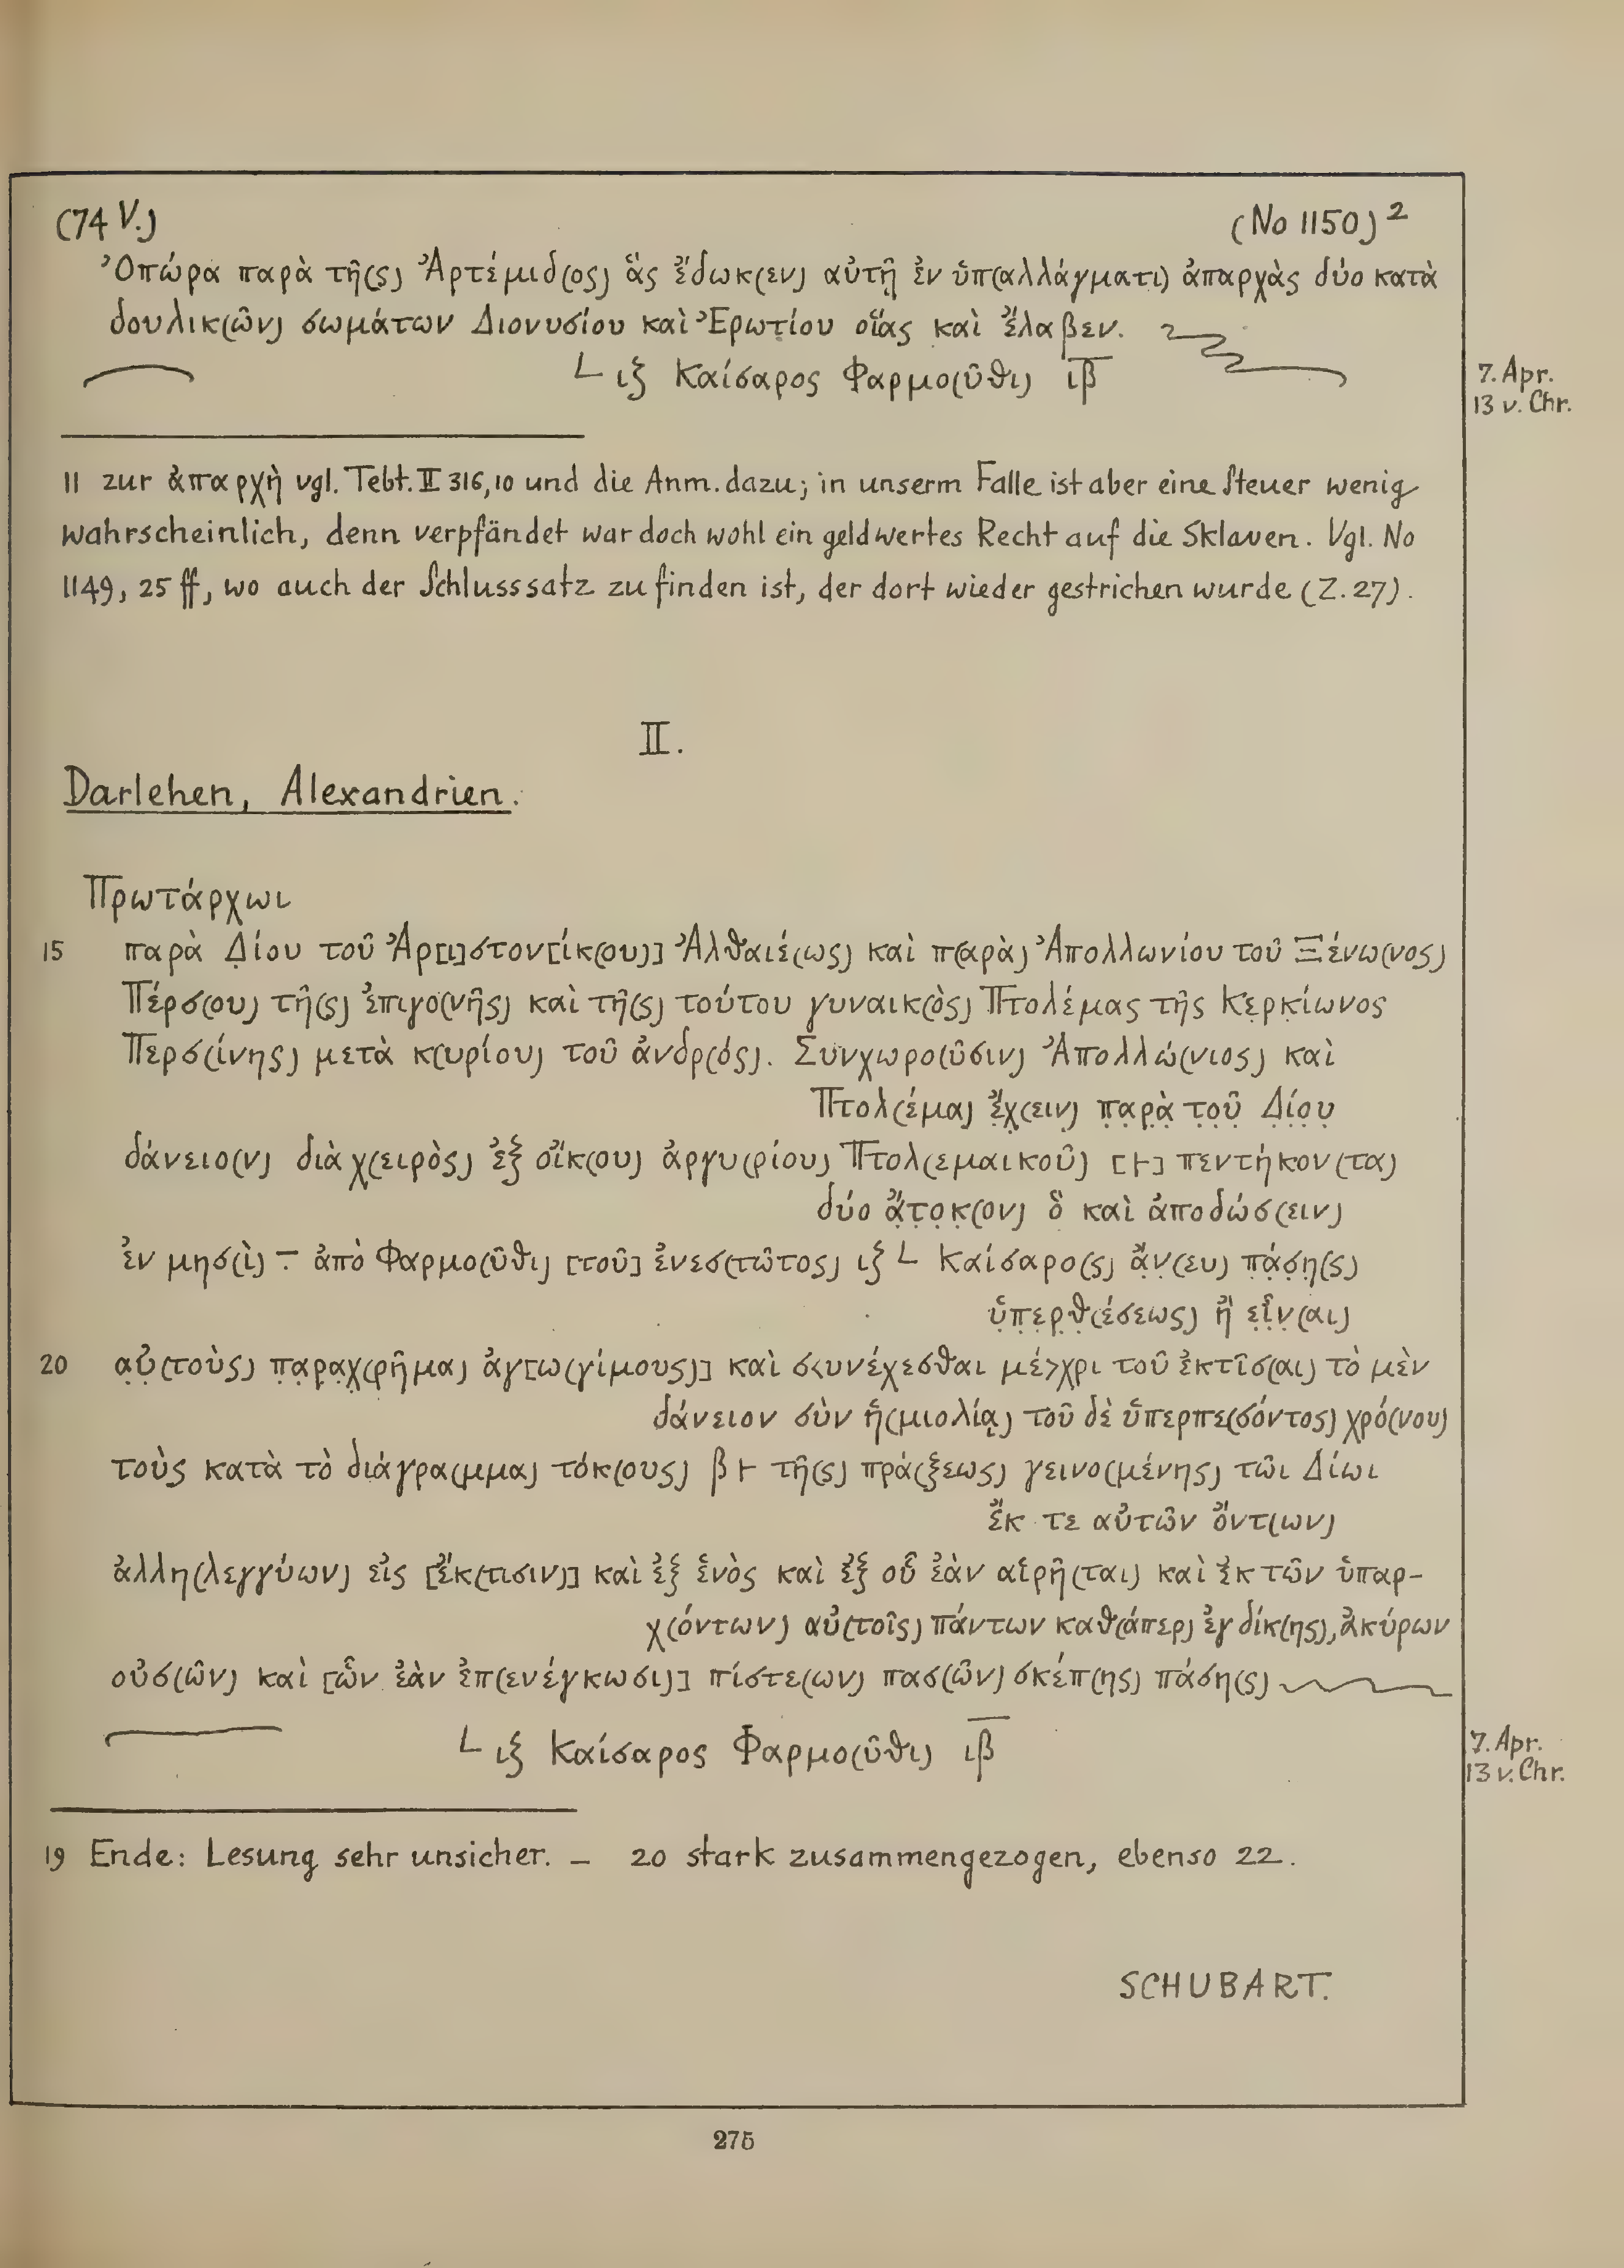 (74 V.) (No 1150) 2
Ὀπώρα παρὰ τῆ(ς) Ἀρτέμιδ(ος) ἃς ἔδωκ(εν) αὐτῇ ἐν ὑπ(αλλάγματι) ἀπαρχὰς δύο κατὰ
δουλικ(ῶν) σωμάτων Διονυσίου καὶ Ἐρωτίου οἵας καὶ ἔλαβεν.
└ ιξ Καίσαρος Φαρμο(ῦθι) ι̅β̅
7. Apr.
13 v. Chr.
11 zur ἀπαρχὴ vgl. Tebt. II 316,10 und die Anm. dazu; in unserm Falle ist aber eine Steuer wenig
wahrscheinlich, denn verpfändet war doch wohl ein geldwertes Recht auf die Sklaven. Vgl. No
1149, 25 ff, wo auch der Schlusssatz zu finden ist, der dort wieder gestrichen wurde (Z. 27).
II.
Darlehen, Alexandrien.
Πρωτάρχωι
15 παρὰ Δ̣ίου τοῦ Ἀρ[ι]στον[ίκ(ου)] Ἀλθαιέ(ως) καὶ π(αρὰ) Ἀπολλωνίου τοῦ Ξένω(νος)
Πέρσ(ου) τῆ(ς) ἐπιγο(νῆς) καὶ τῆ(ς) τούτου γυναικ(ὸς) Πτολέμας τῆς Κε̣ρκ̣ίωνος
Περσ(ίνης) μετὰ κ(υρίου) τοῦ ἀνδρ(ός). Συνχωρο(ῦσιν) Ἀπολλώ(νιος) καὶ
Πτολ(έμα) ἔ̣χ̣(ειν) π̣α̣ρ̣ὰ̣ τ̣ο̣ῦ̣ Δ̣ί̣ο̣υ̣
δάνειο(ν) διὰ χ(ειρὸς) ἐξ οἴκ(ου) ἀργυ(ρίου) Πτολ(εμαικοῦ) [⊢] πεντήκον(τα)
δύο ἄ̣τ̣ο̣κ̣(ον) ὃ καὶ ἀποδώσ(ειν)
ἐν μησ(ὶ) – ἀπὸ Φαρμο(ῦθι) [τοῦ] ἐνεσ(τῶτος) ιξ └ Καίσαρο(ς) ἄ̣ν̣(ευ) π̣ά̣σ̣η̣(ς)
ὑ̣π̣ε̣ρ̣θ̣(έσεως) ἢ̣ ε̣ἶ̣ν̣(αι)
20 α̣ὐ̣(τοὺς) π̣α̣ρ̣α̣χ̣(ρῆμα) ἀγ[ω(γίμους)] καὶ σ<υνέχεσθαι μέ>χρι τοῦ ἐκτῖσ(αι) τὸ μὲν
δάνειον σὺν ἡ(μιολίᾳ) τοῦ δὲ ὑπερπε(σόντος) χρό(νου)
τοὺς κατὰ τὸ διάγρα(μμα) τόκ(ους) β⊢ τῆ(ς) πρά(ξεως) γεινο(μένης) τῶι Δίωι
ἔκ τε αὐτῶν ὄντ(ων)
ἀλλη(λεγγύων) εἰς [ἔκ(τισιν)] καὶ ἐξ ἑνὸς καὶ ἐξ οὗ ἐὰν αἱρῆ(ται) καὶ ἐκ τῶν ὑπαρ-
χ(όντων) αὐ(τοῖς) πάντων καθ(άπερ) ἐγ δίκ(ης), ἀκύρων
οὐσ(ῶν) καὶ [ὧν ἐὰν ἐπ(ενέγκωσι)] πίστε(ων) πασ(ῶν) σκέπ(ης) πάση(ς)
└ ιξ Καίσαρος Φαρμο(ῦθι) ι̅β̅
7. Apr.
13 v. Chr.
19 Ende: Lesung sehr unsicher. – 20 stark zusammengezogen, ebenso 22.
SCHUBART.
275